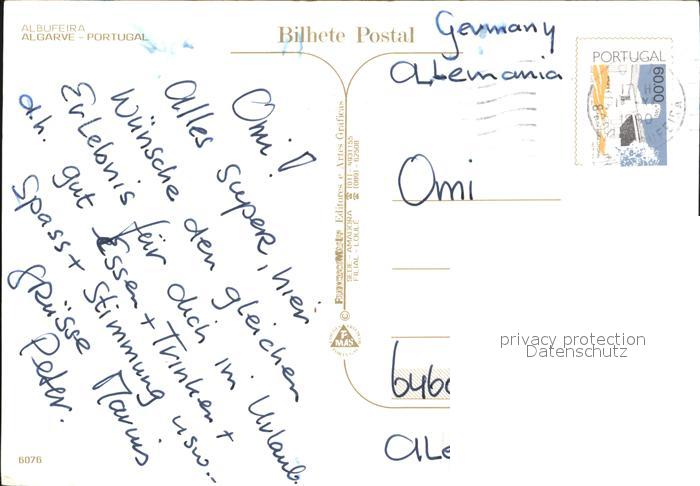 ALBUFEIRA
ALGARVE - PORTUGAL
Bilhete Postal
Germany
Alemania
PORTUGAL
60.00
Omi!
Alles super, hier
Wünsche den gleichen
Erlebnis für dich im Urlaub.
d.h. gut Essen + Trinken +
Spass + Stimmung usw..
Grüsse Marius
Peter.
Omi
Editores e Artes Gráficas
SEDE - AMADORA
FILIAL - LOULÉ
©
MAS
privacy protection
Datenschutz
6076